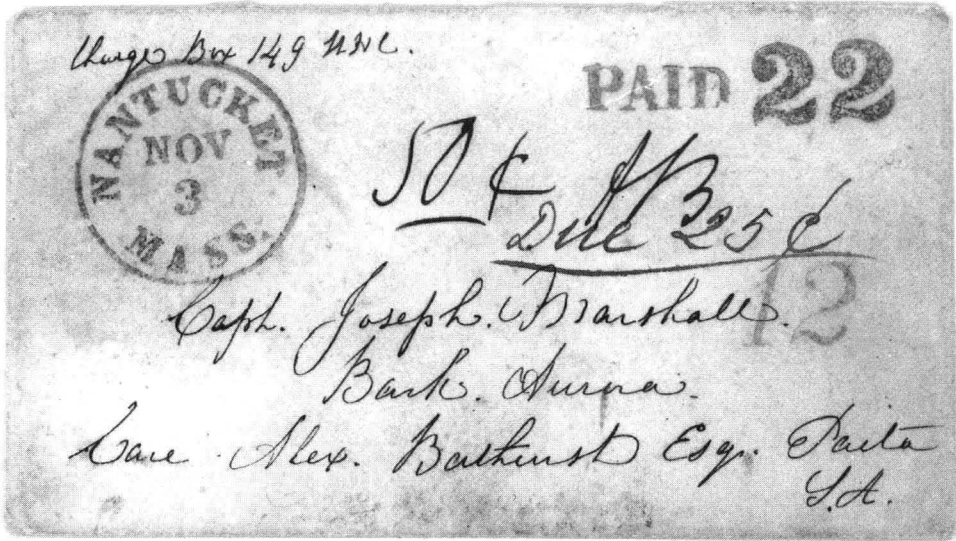 Charge Box 149
NANTUCKET
NOV
3
MASS.
PAID 22
50 ¢
Due 25 ¢
12
Capt. Joseph. Marshall.
Bark. Aurora.
Care Alex. Bathurst Esqr. Paita
S.A.